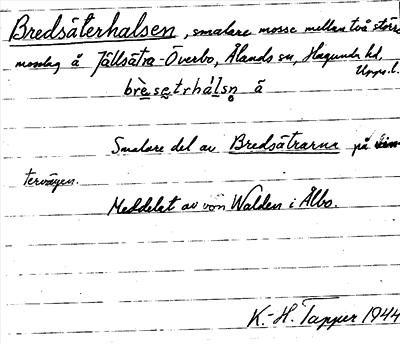 Bredsäterhalsen, smalare mosse mellan två större
mosslag å Tällsätra-Överbo, Ålands sn, Hagunda hd,
Upps.l.
brèsetrhálsn ā
Smalare del av Bredsätrarna på
tervägen.
Meddelat av von Walden i Ålbo.
K.-H. Tapper 1944